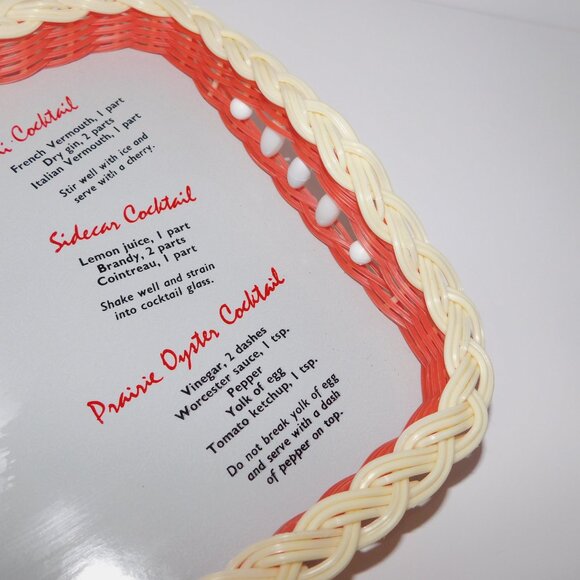 Cocktail
French Vermouth, 1 part
Dry gin, 2 parts
Italian Vermouth, 1 part
Stir well with ice and
serve with a cherry.
Sidecar Cocktail
Lemon juice, 1 part
Brandy, 2 parts
Cointreau, 1 part
Shake well and strain
into cocktail glass.
Prairie Oyster Cocktail
Vinegar, 2 dashes
Worcester sauce, 1 tsp.
Pepper
Yolk of egg
Tomato ketchup, 1 tsp.
Do not break yolk of egg
and serve with a dash
of pepper on top.